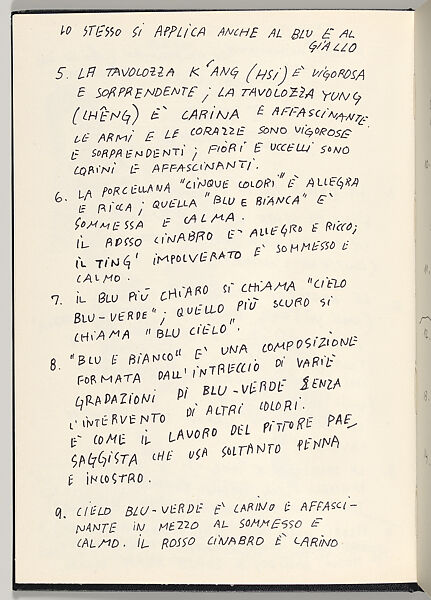 LO STESSO SI APPLICA ANCHE AL BLU E AL
GIALLO
5. LA TAVOLOZZA K'ANG (HSI) È VIGOROSA
E SORPRENDENTE; LA TAVOLOZZA YUNG
(CHÊNG) È CARINA E AFFASCINANTE.
LE ARMI E LE CORAZZE SONO VIGOROSE
E SORPRENDENTI; FIORI E UCCELLI SONO
CARINI E AFFASCINANTI.
6. LA PORCELLANA "CINQUE COLORI" È ALLEGRA
E RICCA; QUELLA "BLU E BIANCA" E'
SOMMESSA E CALMA.
IL ROSSO CINABRO E' ALLEGRO E RICCO;
IL TING' IMPOLVERATO E' SOMMESSO E
CALMO.
7. IL BLU PIÙ CHIARO SI CHIAMA "CIELO
BLU-VERDE"; QUELLO PIÙ SCURO SI
CHIAMA "BLU CIELO".
8. "BLU E BIANCO" E' UNA COMPOSIZIONE
FORMATA DALL'INTRECCIO DI VARIE
GRADAZIONI DI BLU-VERDE SENZA
L'INTERVENTO DI ALTRI COLORI.
È COME IL LAVORO DEL PITTORE PAE_
SAGGISTA CHE USA SOLTANTO PENNA
E INCOSTRO.
9. CIELO BLU-VERDE E' CARINO E AFFASCI-
NANTE IN MEZZO AL SOMMESSO E
CALMO. IL ROSSO CINABRO È CARINO